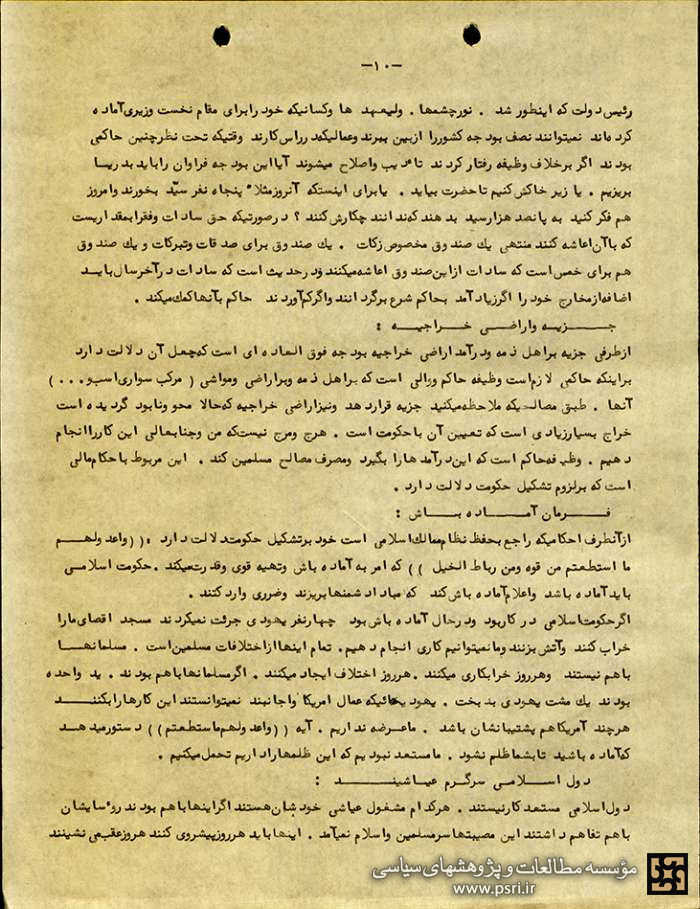 -۱۰-
رئیس دولت که اینطور شد . نورچشمها . ولیعهد ها وکسانیکه خود را برای مقام نخست وزیری آماده
کرده‌اند نمیتوانند نصف بودجه کشور را ازبین ببرند وعمالیکه در راس کارند وقتیکه تحت نظر چنین حاکمی
بودند اگر برخلاف وظیفه رفتار کردند تأدیب واصلاح میشوند آیا این بودجه فراوان را باید بدریا
بریزیم . یا زیر خاکش کنیم تا حضرت بیاید . یا برای اینستکه آنروز مثلا پنجاه نفر سیّد بخورند وامروز
هم فکر کنید به پانصد هزار سید بدهند که ندانند چکارش کنند ؟ در صورتیکه حق سادات وفقرا بمقداریست
که با آن اعاشه کنند منتهی یك صندوق مخصوص زکات . یك صندوق برای صدقات وتبرکات و یك صندوق
هم برای خمس است که سادات از این صندوق اعاشه میکنند ودر حدیث است که سادات در آخر سال بایـد
اضافه از مخارج خود را اگر زیاد آمد بحاکم شرع برگردانند واگر کم آوردند حاکم بآنها کمك میکند .
جـــزیـه واراضـــی خــراجیــه :
ازطرفی جزیه بر اهل ذمه ودرآمد اراضی خراجیه بودجه فوق العاده ای است که جعل آن دلالت دارد
براینکه حاکمی لازم است وظیفه حاکم ووالی است که بر اهل ذمه وبر اراضی ومواشی ( مرکب سواری اسب و . . . )
آنها . طبق مصالحیکه ملاحظه میکنید جزیه قرار دهد ونیز اراضی خراجیه که حالا محو ونابود گردیده است
خراج بسیار زیادی است که تعیین آن با حکومت است . هرج ومرج نیست که من وجنابعالی این کار را انجام
دهیم . وظیفه حاکم است که این درآمدها را بگیرد ومصرف مصالح مسلمین کند . این مربوط باحکام مالی
است که بر لزوم تشکیل حکومت دلالت دارد .
فـــرمان آمـــاده بـــاش :
ازآنطرف احکامیکه راجع بحفظ نظام ممالك اسلامی است خود بر تشکیل حکومت دلالت دارد : (( واعد ولهــم
ما استطعتم من قوه ومن رباط الخیل )) که امر به آماده باش وتهیه قوی وقدرت میکند . حکومت اسلامــی
باید آماده باشد واعلام آماده باش کند که مبادا دشمنها بریزند وضرری وارد کنند .
اگر حکومت اسلامی در کار بود ودر حال آماده باش بود چهار نفر یهودی جرئت نمیکردند مسجد اقصای ما را
خراب کنند وآتش بزنند وما نمیتوانیم کاری انجام دهیم . تمام اینها از اختلافات مسلمین است . مسلمانهــا
باهم نیستند وهر روز خرابکاری میکنند . هر روز اختلاف ایجاد میکنند . اگر مسلمانها باهم بودند . ید واحده
بودند یك مشت یهودی بدبخت . یهودیهائیکه عمال امریکا واجانبند نمیتوانستند این کارها را بکننــد
هر چند آمریکا هم پشتیبانشان باشد . ما عرضه نداریم . آیه (( واعد ولهم ما ستطعتم )) دستور میدهــد
که آماده باشید تا بشما ظلم نشود . ما مستعد نبودیم که این ظلمها را داریم تحمل میکنیم .
دول اســـلامـی سرگـرم عیــاشیـــند :
دول اسلامی مستعد کار نیستند . هر کدام مشغول عیاشی خودشان هستند اگر اینها باهم بودند روٴسایشان
باهم تفاهم داشتند این مصیبتها سر مسلمین واسلام نمیآمد . اینها باید هر روز پیشروی کنند هر روز عقب می نشینند
مؤسسه مطالعات و پژوهشهای سیاسی
www.psri.ir